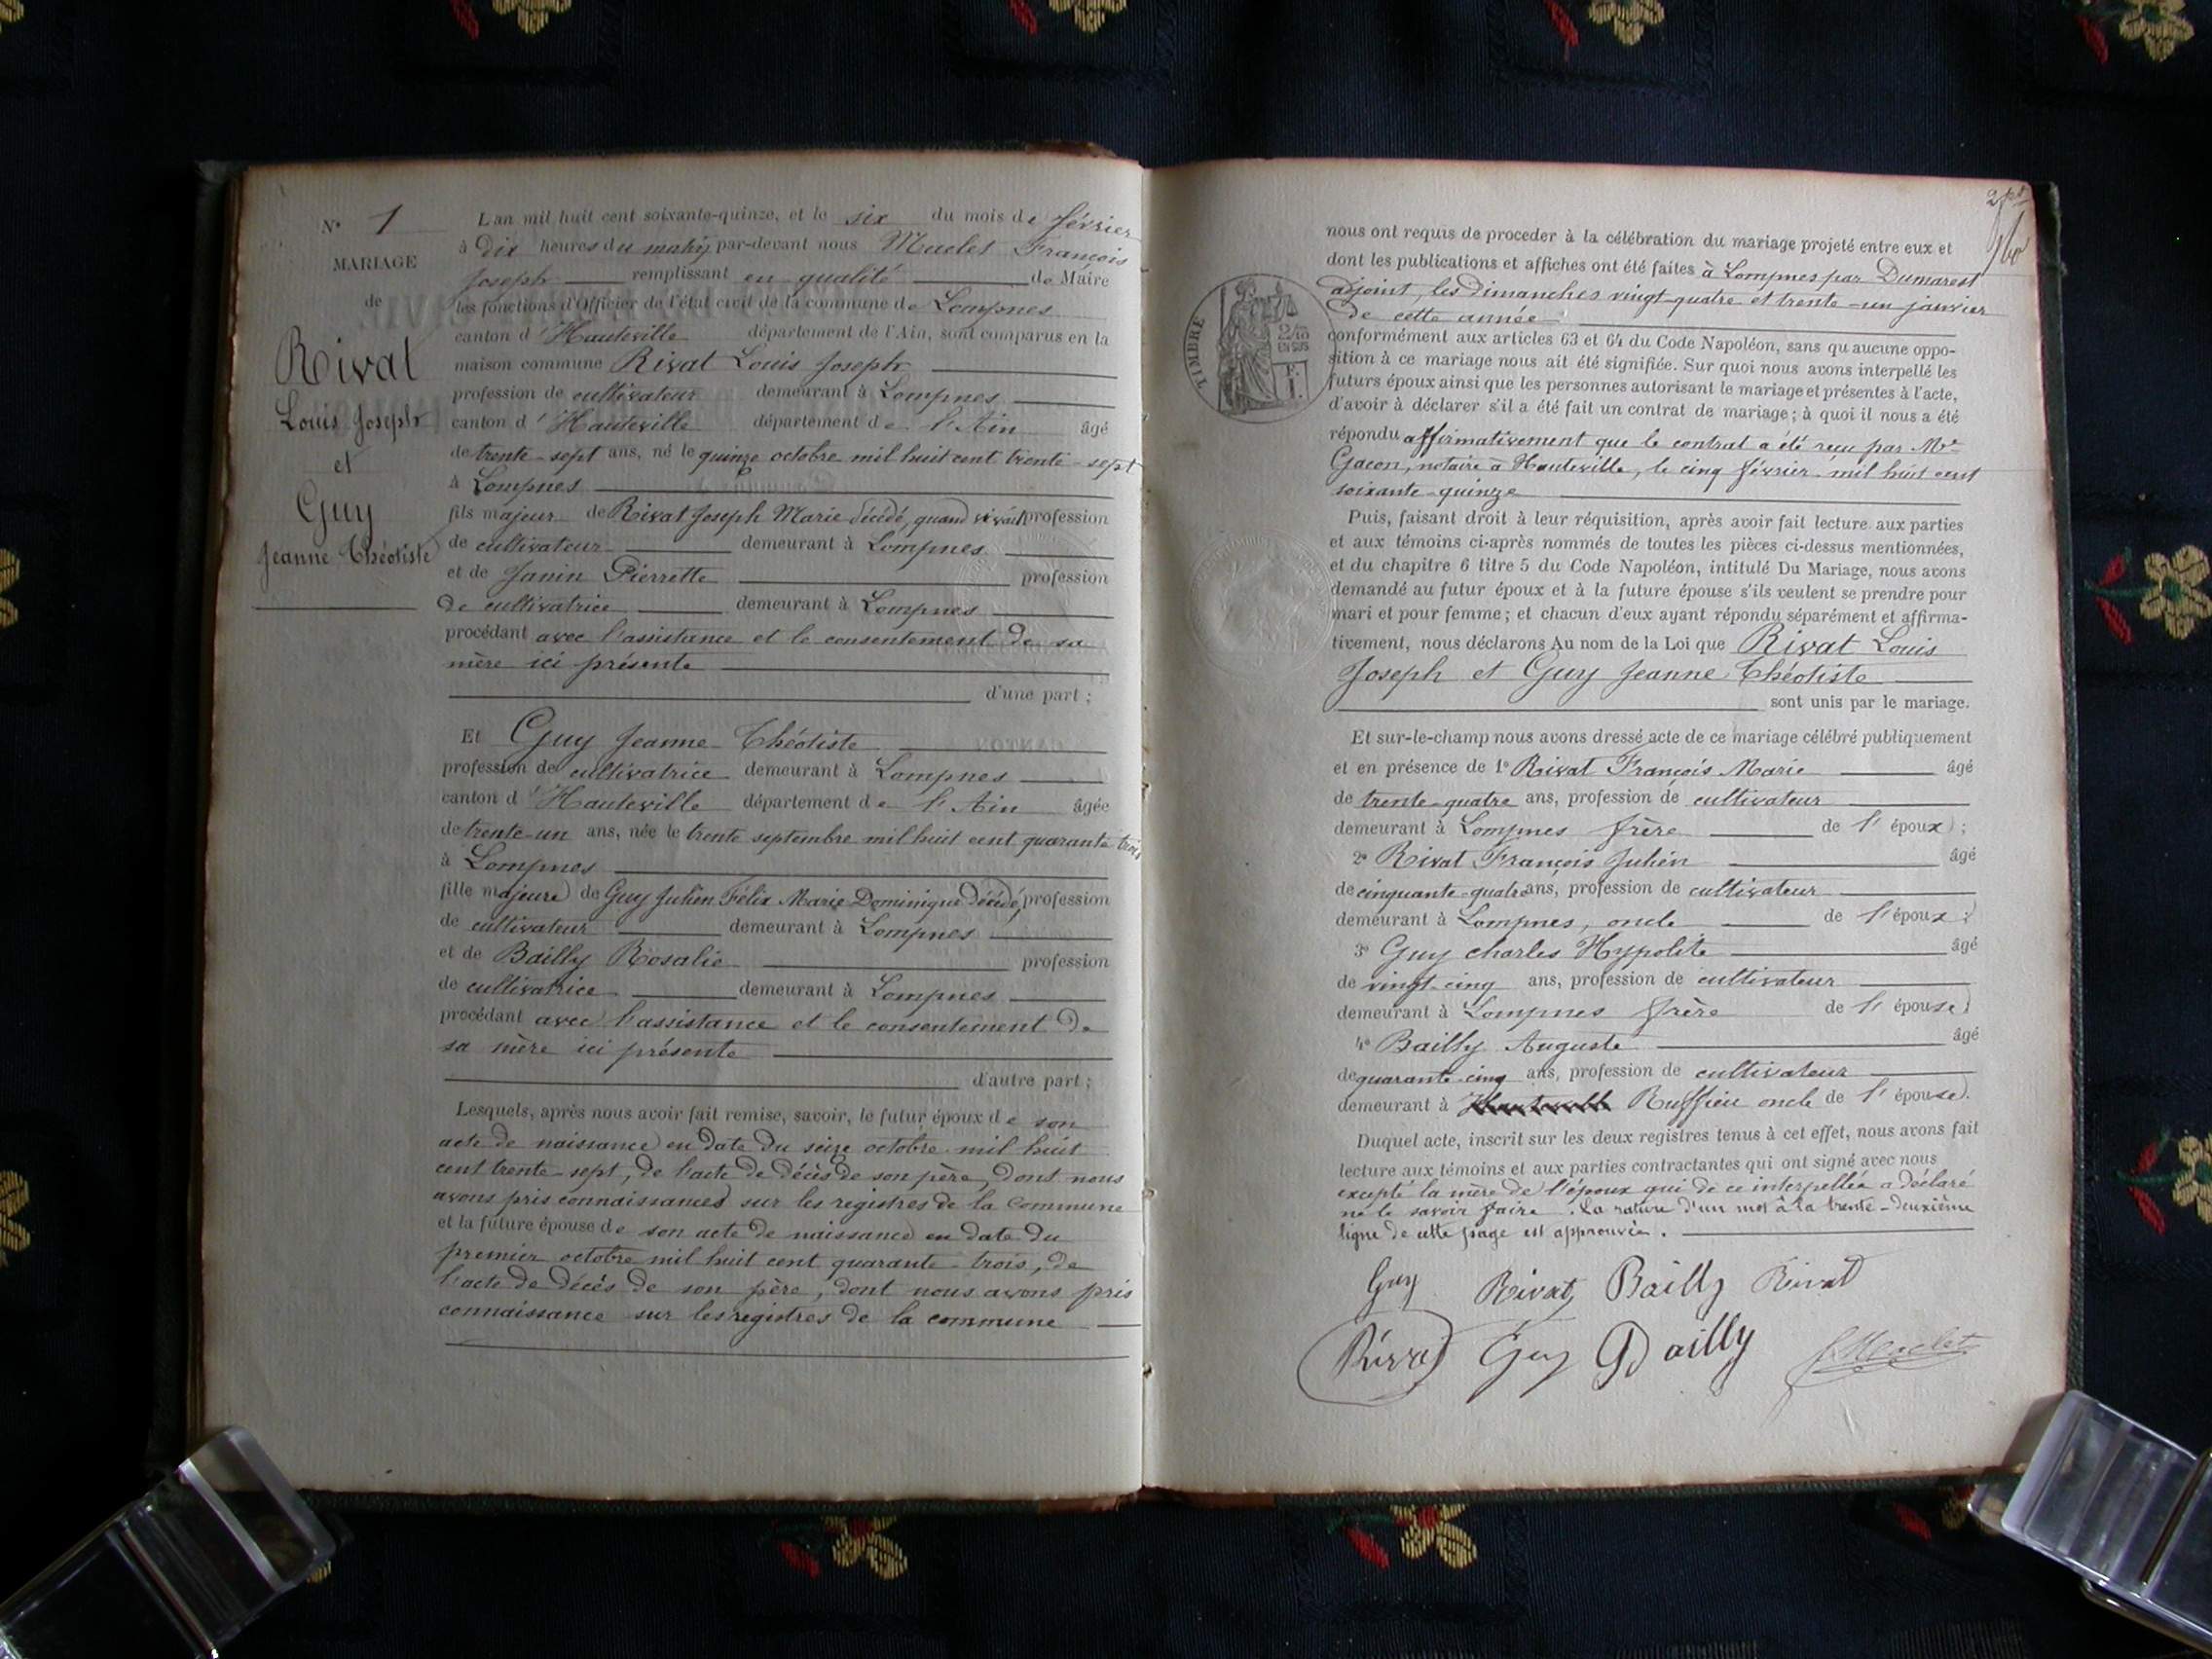 N° 1
MARIAGE
de
Rivat
Louis Joseph
et
Guy
Jeanne Théotiste
L'an mil huit cent soixante-quinze, et le six du mois de février
à dix heures du matin par-devant nous Maclet François
Joseph remplissant en qualité de Maire
les fonctions d'Officier de l'état civil de la commune de Lompnes
canton d'Hauteville département de l'Ain, sont comparus en la
maison commune Rivat Louis Joseph
profession de cultivateur demeurant à Lompnes
canton d'Hauteville département de l'Ain âgé
de trente-sept ans, né le quinze octobre mil huit cent trente-sept
à Lompnes
fils majeur de Rivat Joseph Marie décédé, quand vivait profession
de cultivateur demeurant à Lompnes
et de Janin Pierrette profession
de cultivatrice demeurant à Lompnes
procédant avec l'assistance et le consentement de sa
mère ici présente
d'une part ;
Et Guy Jeanne Théotiste
profession de cultivatrice demeurant à Lompnes
canton d'Hauteville département de l'Ain âgée
de trente-un ans, née le trente septembre mil huit cent quarante-trois
à Lompnes
fille majeure de Guy Julien Félix Marie Dominique décédé, profession
de cultivateur demeurant à Lompnes
et de Bailly Rosalie profession
de cultivatrice demeurant à Lompnes
procédant avec l'assistance et le consentement de
sa mère ici présente
d'autre part ;
Lesquels, après nous avoir fait remise, savoir, le futur époux de son
acte de naissance en date du seize octobre mil huit
cent trente-sept, de l'acte de décès de son père, dont nous
avons pris connaissances sur les registres de la commune
et la future épouse de son acte de naissance en date du
premier octobre mil huit cent quarante-trois, de
l'acte de décès de son père, dont nous avons pris
connaissance sur les registres de la commune
TIMBRE
2/10
EN SUS
nous ont requis de proceder à la célébration du mariage projeté entre eux et
dont les publications et affiches ont été faites à Lompnes par Dumarest
adjoint, les dimanches vingt-quatre et trente-un janvier
de cette année
conformément aux articles 63 et 64 du Code Napoléon, sans qu'aucune oppo-
sition à ce mariage nous ait été signifiée. Sur quoi nous avons interpellé les
futurs époux ainsi que les personnes autorisant le mariage et présentes à l'acte,
d'avoir à déclarer s'il a été fait un contrat de mariage ; à quoi il nous a été
répondu affirmativement que le contrat a été reçu par Me
Gacon, notaire à Hauteville, le cinq février mil huit cent
soixante-quinze
Puis, faisant droit à leur réquisition, après avoir fait lecture aux parties
et aux témoins ci-après nommés de toutes les pièces ci-dessus mentionnées,
et du chapitre 6 titre 5 du Code Napoléon, intitulé Du Mariage, nous avons
demandé au futur époux et à la future épouse s'ils veulent se prendre pour
mari et pour femme ; et chacun d'eux ayant répondu séparément et affirma-
tivement, nous déclarons Au nom de la Loi que Rivat Louis
Joseph et Guy Jeanne Théotiste
sont unis par le mariage.
Et sur-le-champ nous avons dressé acte de ce mariage célébré publiquement
et en présence de 1° Rivat François Marie âgé
de trente-quatre ans, profession de cultivateur
demeurant à Lompnes frère de l'époux ;
2° Rivat François Julien âgé
de cinquante-quatre ans, profession de cultivateur
demeurant à Lompnes, oncle de l'époux ;
3° Guy charles Hypolite âgé
de vingt-cinq ans, profession de cultivateur
demeurant à Lompnes frère de l'épouse
4° Bailly Auguste âgé
de quarante-cinq ans, profession de cultivateur
demeurant à Ruffieu oncle de l'épouse.
Duquel acte, inscrit sur les deux registres tenus à cet effet, nous avons fait
lecture aux témoins et aux parties contractantes qui ont signé avec nous
excepté la mère de l'époux qui de ce interpellée a déclaré
ne le savoir faire. La rature d'un mot à la trente-deuxième
ligne de cette page est approuvée.
Guy Rivat Bailly Rivat
Rivat Guy Bailly Maclet